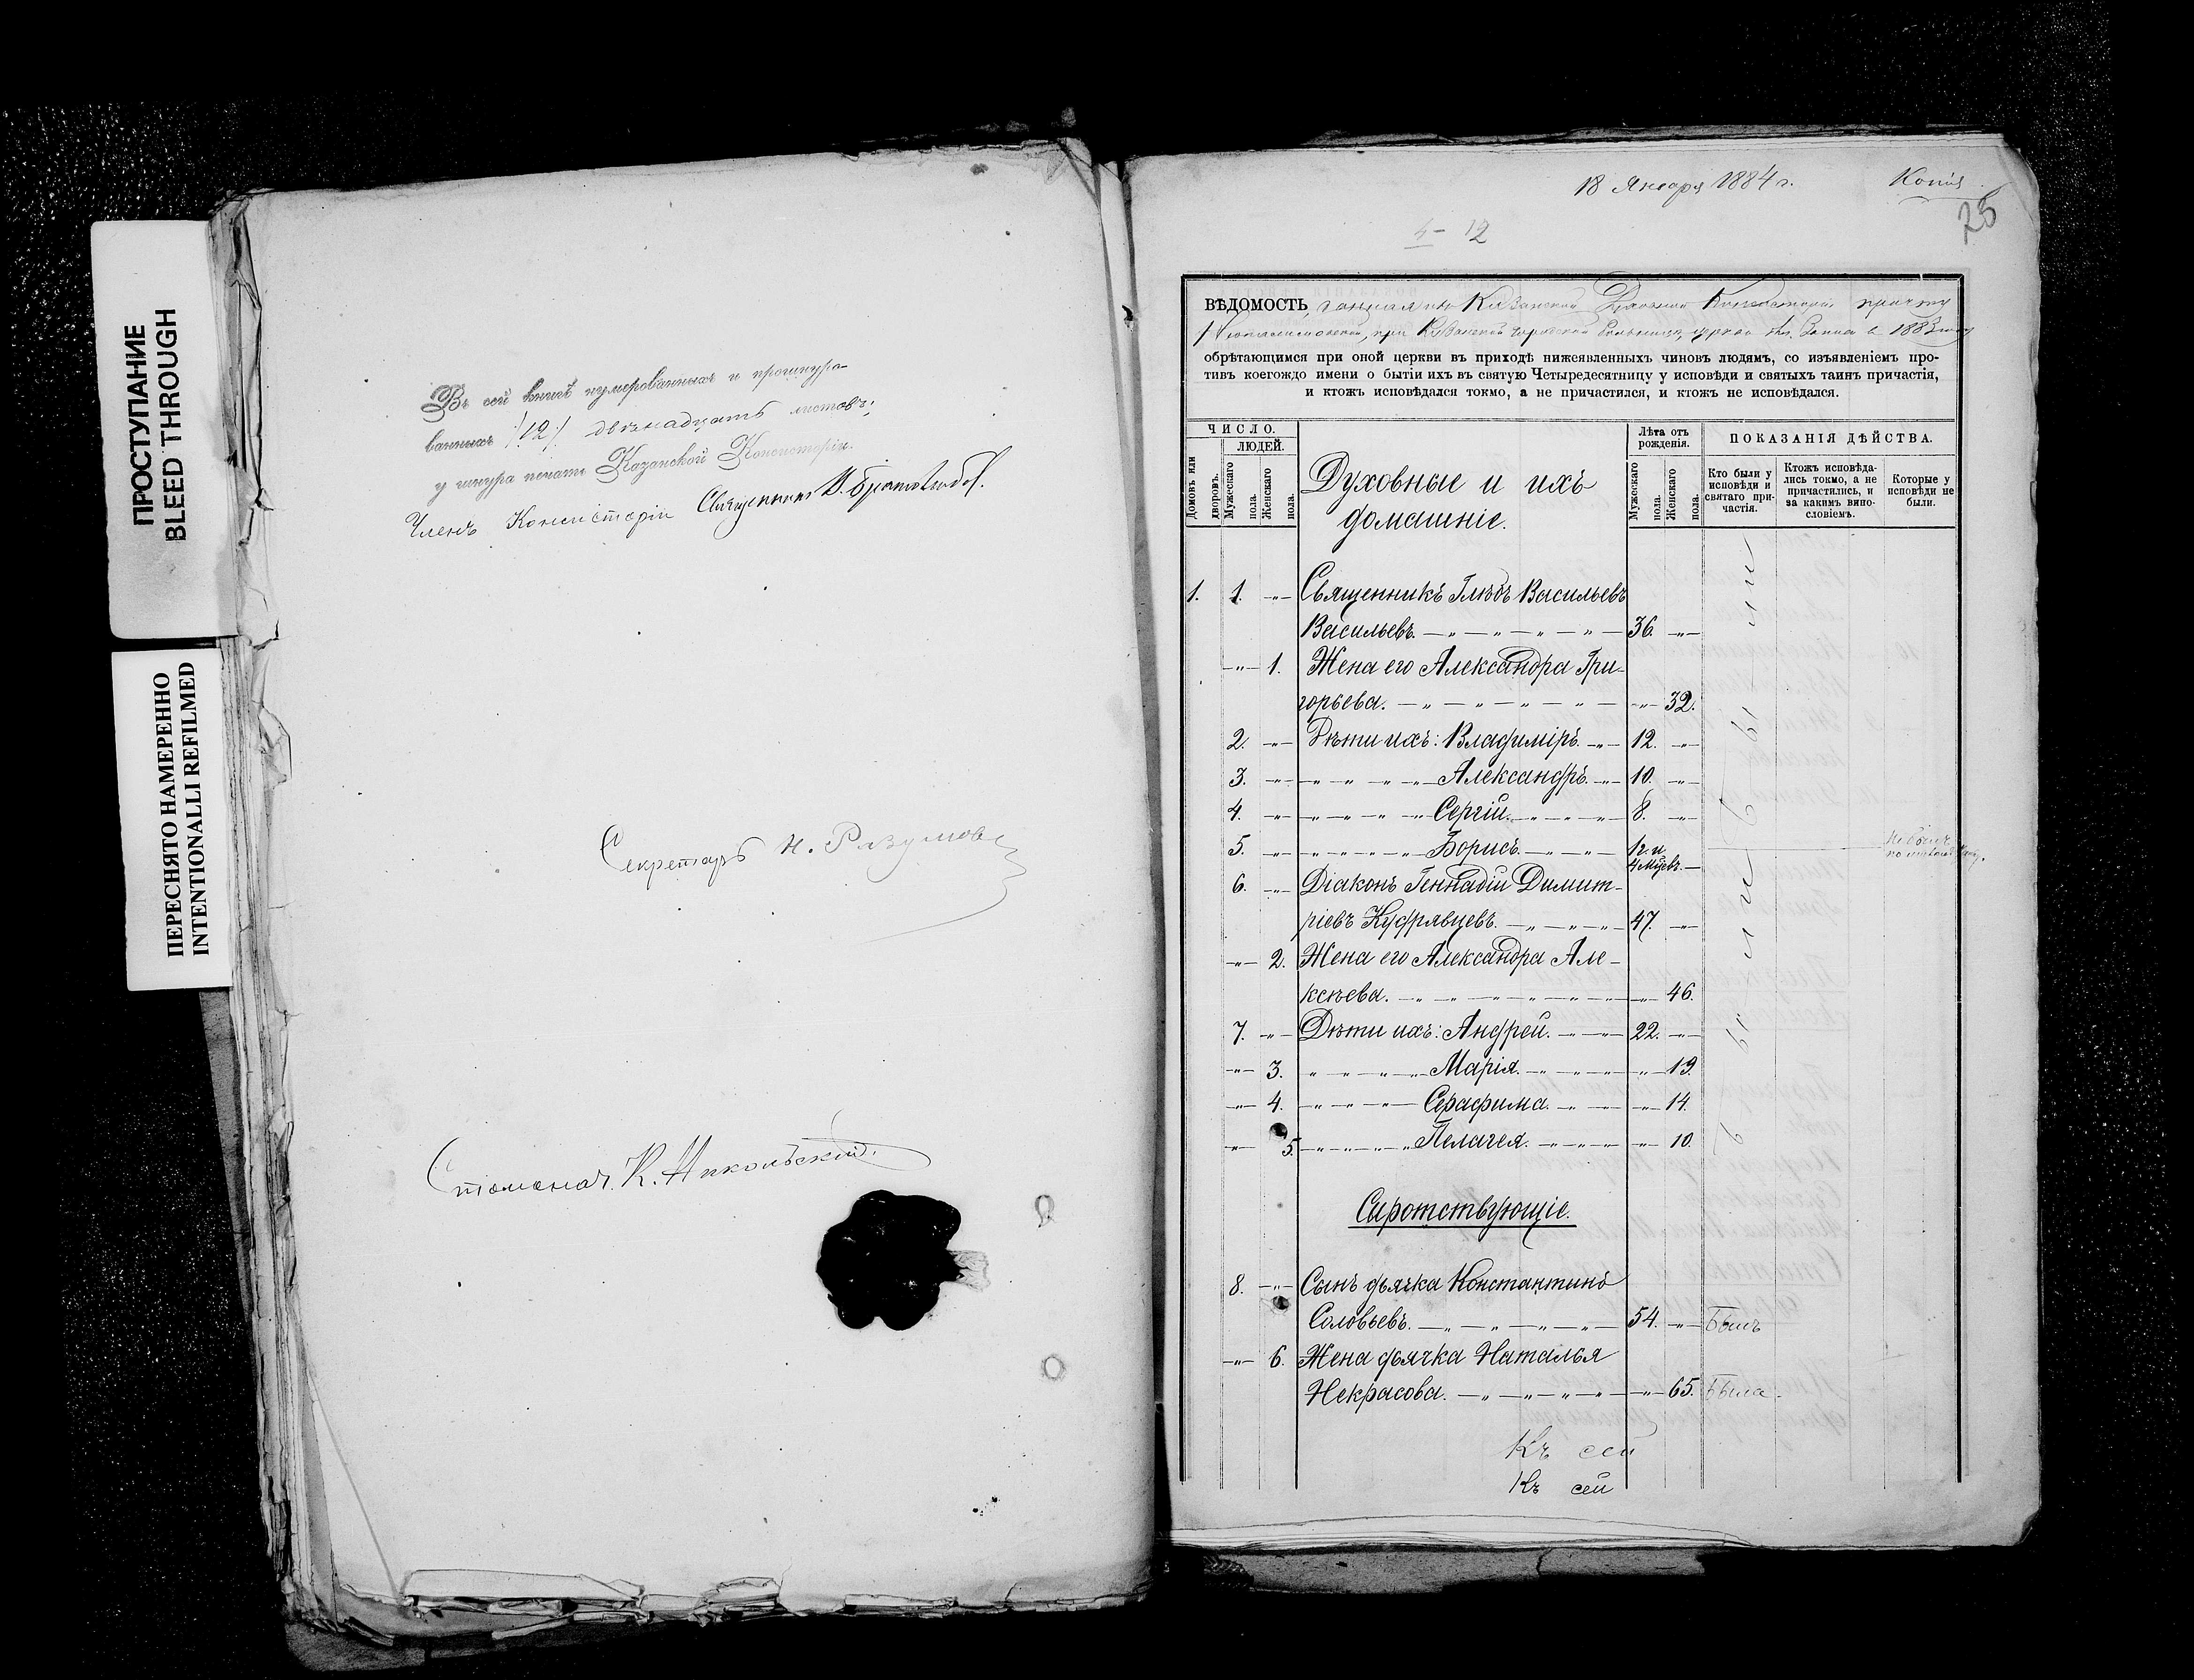 ПРОСТУПАНИЕ
BLEED THROUGH
ПЕРЕСНЯТО НАМЕРЕННО
INTENTIONALLI REFILMED
Въ сей книгѣ нумерованныхъ и прошнуро-
ванныхъ /12/ двѣнадцать листовъ;
у шнура печать Казанской Консисторіи.
Членъ Консисторіи Священникъ
Секретарь Н. Разумовъ
К. Никольскій.
18 Января 1884 г.
Копія
25
12
ВѢДОМОСТЬ, данная изъ Казанской Духовной Консисторіи причту
при Казанской городской больницѣ, церкви для записи въ 1883 году
обрѣтающимся при оной церкви въ приходѣ нижеявленныхъ чиновъ людямъ, со изъявленіемъ про-
тивъ коегождо имени о бытіи ихъ въ святую Четыредесятницу у исповѣди и святыхъ таинъ причастія,
и ктожъ исповѣдался токмо, а не причастился, и ктожъ не исповѣдался.
ЧИСЛО.
ЛЮДЕЙ.
Домовъ или дворовъ.
Мужескаго пола.
Женскаго пола.
Духовные и ихъ
домашніе.
Лѣта отъ рожденія.
Мужескаго пола.
Женскаго пола.
ПОКАЗАНІЯ ДѢЙСТВА.
Кто были у исповѣди и святаго при-частія.
Ктожъ исповѣда-лись токмо, а не причастились, и за какимъ вино-словіемъ.
Которые у исповѣди не были.
1. 1. -„- Священникъ Глѣбъ Васильевъ
Васильевъ. 36. -„-
-„- 1. Жена его Александра Гри-
горьева. -„- 32.
2. -„- Дѣти ихъ: Владиміръ. 12. -„-
3. -„- Александръ. 10. -„-
4. -„- Сергій. 8. -„-
5. -„- Борисъ. 1 г. и
4 мѣсъ. Не былъ
6. -„- Діаконъ Геннадій Димит-
ріевъ Кудрявцевъ. 47. -„-
-„- 2. Жена его Александра Але-
ксѣева. -„- 46.
7. -„- Дѣти ихъ: Андрей. 22. -„-
-„- 3. Марія. -„- 19.
-„- 4. Серафима. -„- 14.
-„- 5. Пелагея. -„- 10.
были
были
Сиротствующіе.
8. -„- Сынъ дьячка Константинъ
Соловьевъ. 54. -„- Былъ
-„- 6. Жена дьячка Наталья
Некрасова. -„- 65. Была.
Къ сей
Къ сей